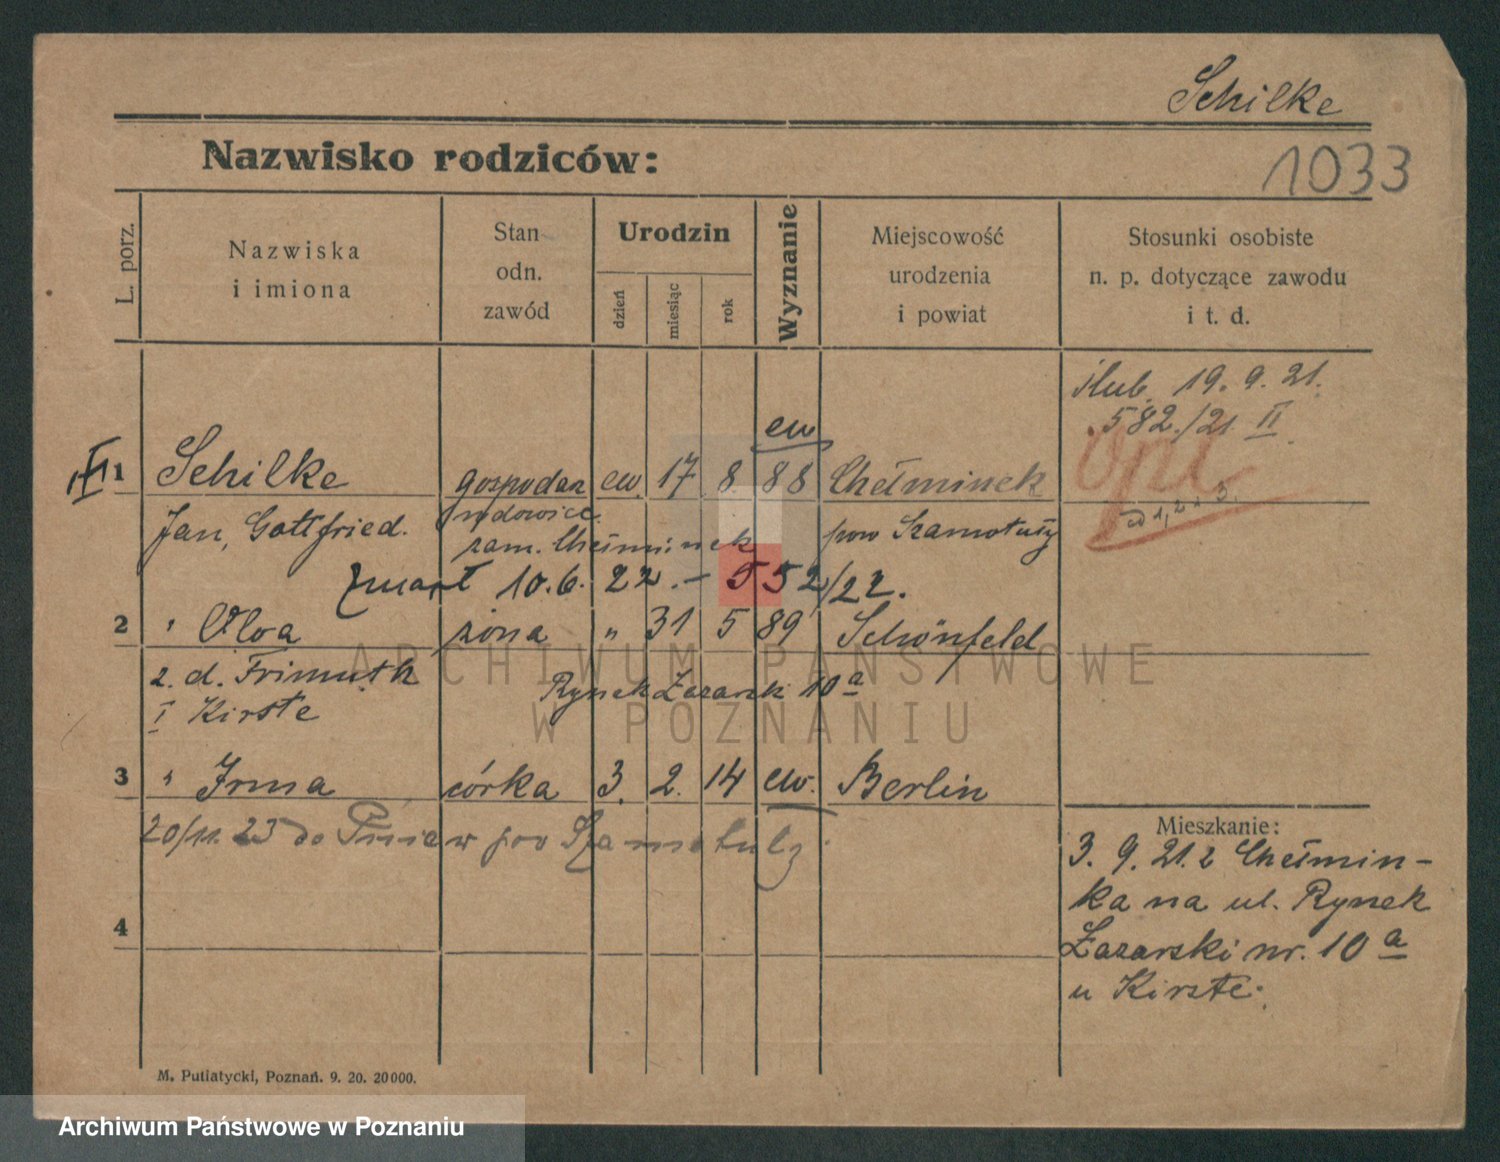 Schilke
Nazwisko rodziców:
1033
L. porz.
Nazwiska
i imiona
Stan
odn.
zawód
Urodzin
dzień
miesiąc
rok
Wyznanie
Miejscowość
urodzenia
i powiat
Stosunki osobiste
n. p. dotyczące zawodu
i t. d.
ślub. 19. 9. 21.
582./21 II
ew
1 Schilke gospodarz ew. 17 8 88 Chełminek
Jan, Gottfried. zam. Chełminek pow Szamotuły
zmarł 10. 6. 22. - 552/22.
2 " żona " 31 5 89 Schönfeld
z. d. Frimuth Rynek Łazarski 10a
I Kirste
3 " Irma córka 3. 2. 14 ew. Berlin
20/11. 23 do Pniew pow Szamotuły
Mieszkanie:
3. 9. 21. z Chełmin-
ka na ul. Rynek
Łazarski nr. 10a
u Kirste.
4
M. Putiatycki, Poznań. 9. 20. 20000.
ARCHIWUM PAŃSTWOWE
W POZNANIU
Archiwum Państwowe w Poznaniu